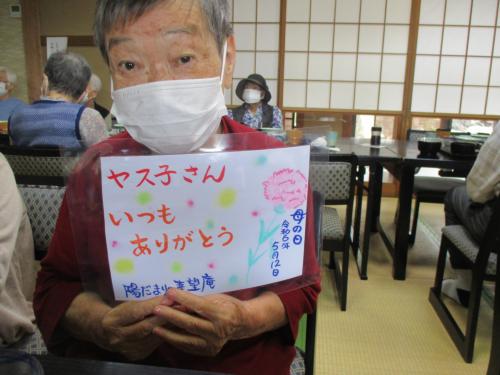 ヤス子さん
いつも
ありがとう
母の日
令和6年
5月12日
陽だまり 美望庵